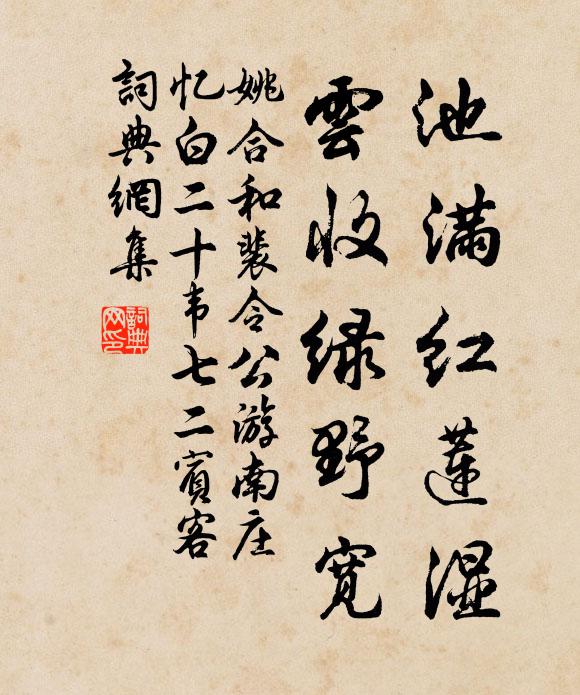 池满红莲湿
雲收绿野宽
姚合和裴令公游南庄
忆白二十韦七二賓客
詞典網集
詞典网印